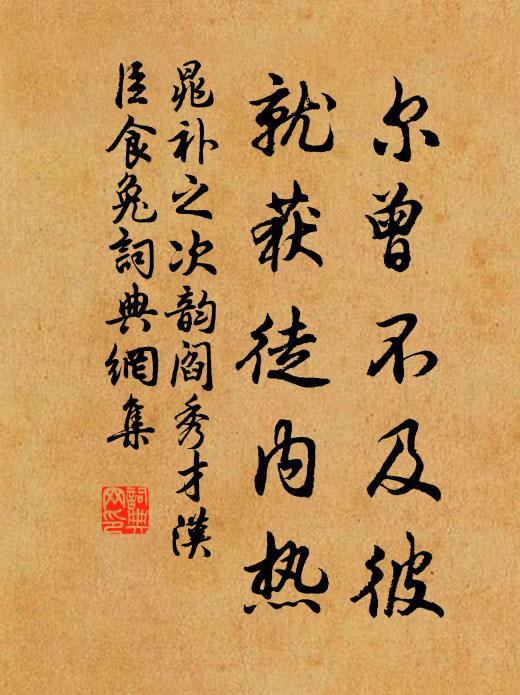 尔曾不及彼
就获徒内热
晁补之次韵阎秀才汉
臣食兔詞典網集
詞典网印